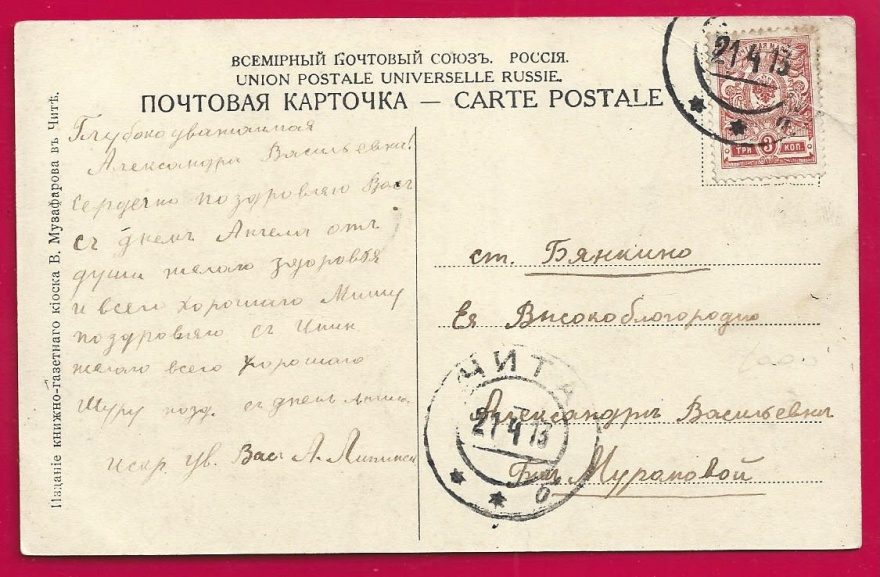 ВСЕМІРНЫЙ ПОЧТОВЫЙ СОЮЗЪ. РОССІЯ.
UNION POSTALE UNIVERSELLE RUSSIE.
ПОЧТОВАЯ КАРТОЧКА — CARTE POSTALE
21 4 13
ТРИ 3 КОП.
Изданіе книжно-газетнаго кіоска В. Музафарова въ Читѣ.
Глубокоуважаемая
Александра Васильевна!
Сердечно поздровляю Васъ
съ днемъ Ангела отъ
души желаю здоровья
и всего хорошаго Мишу
поздровляю съ
желаю всего хорошаго
Шуру позд. съ днемъ
искр. ув. Васъ А.
ст. Бянкино
Ея Высокоблогородию
Александрѣ Васильевнѣ
ЧИТА
21 4 13